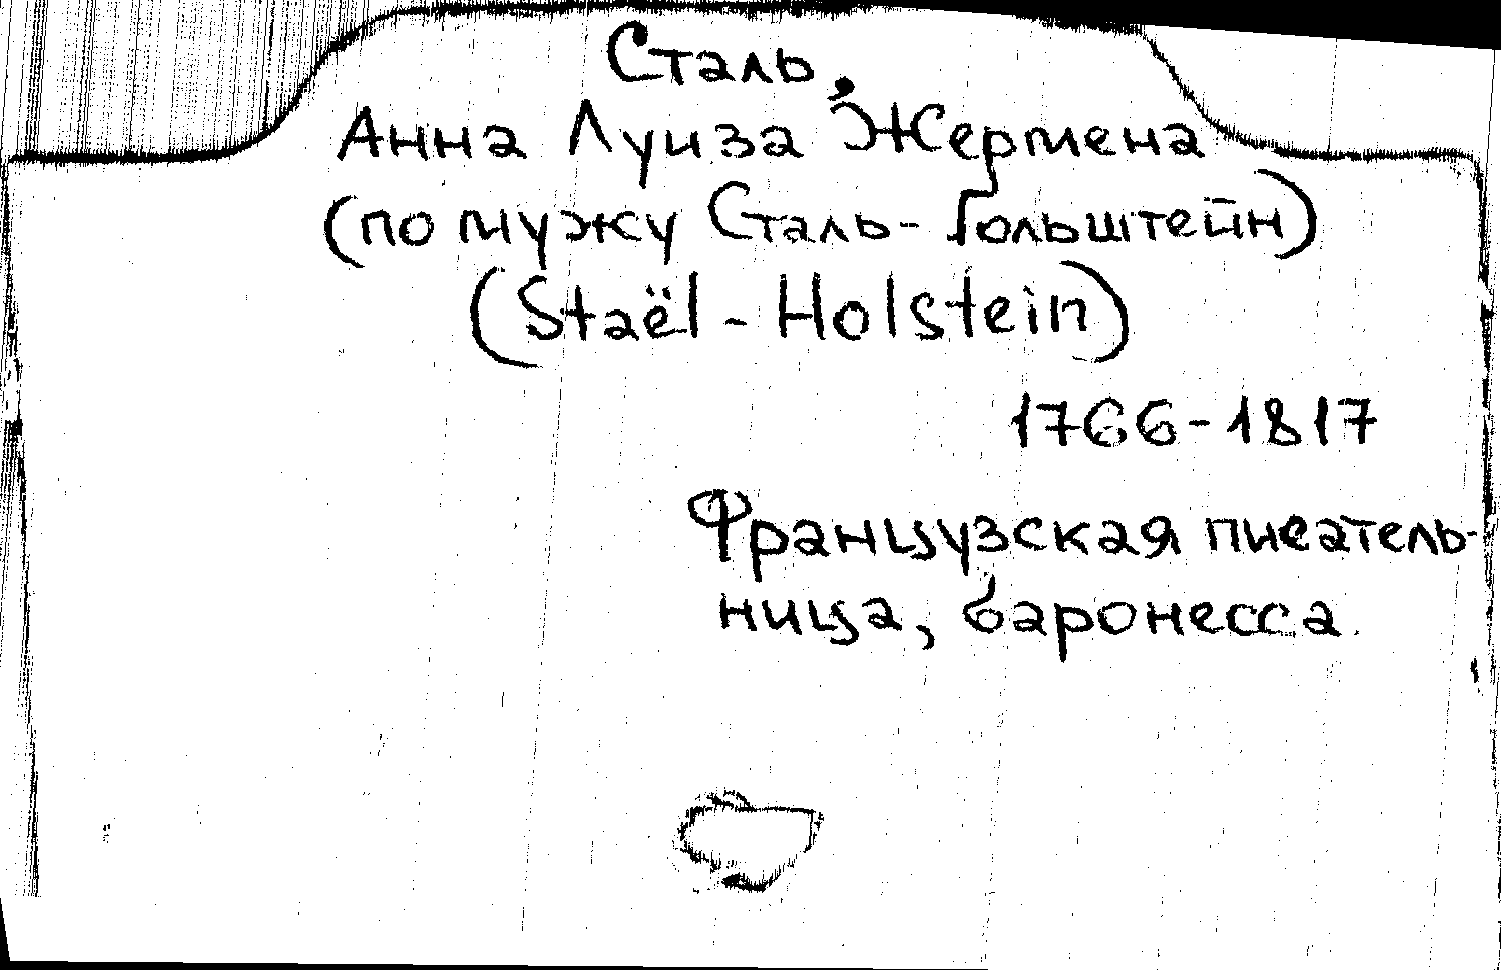 Сталь,
Анна Луиза Жермена
(по мужу Сталь-Гольштейн)
(Staёl - Holstein)
1766-1817
Французская писатель-
ница, баронесса